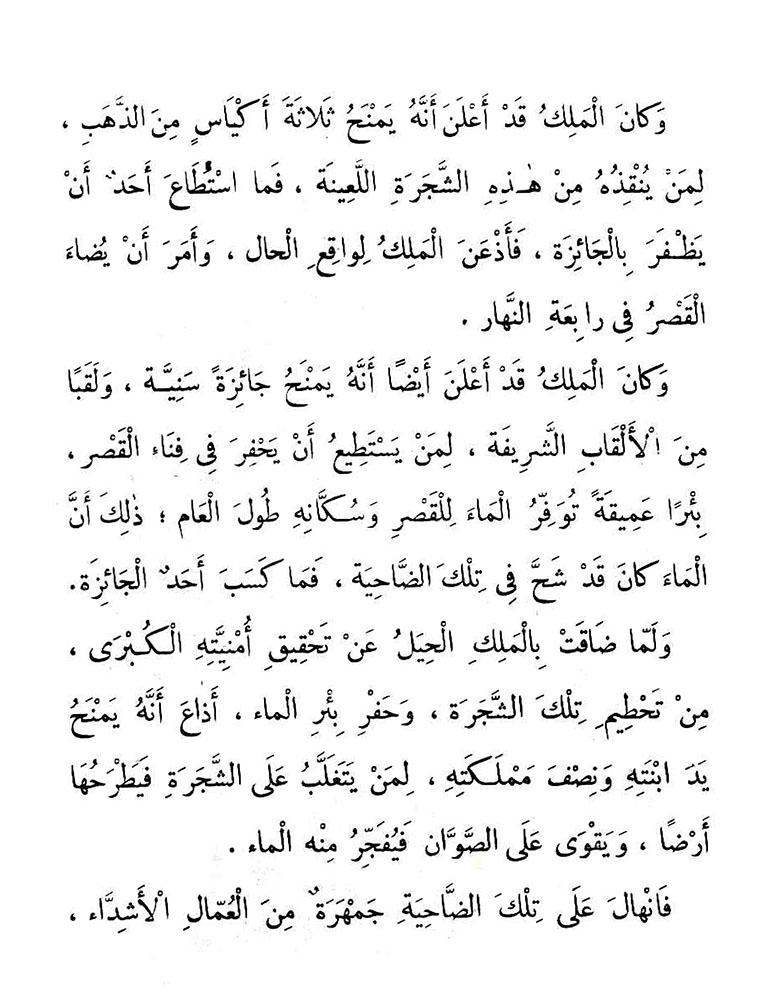 وَكانَ الْمَلِكُ قَدْ أَعْلَنَ أَنَّهُ يَمْنَحُ ثَلاثَةَ أَكْيَاسٍ مِنَ الذَّهَبِ ،
لِمَنْ يُنْقِذُهُ مِنْ هٰذِهِ الشَّجَرَةِ اللَّعِينَة ، فَما اسْتَطَاعَ أَحَدٌ أَنْ
يَظْفَرَ بِالْجَائِزَة ، فَأَذْعَنَ الْمَلِكُ لِواقِعِ الْحال ، وَأَمَرَ أَنْ يُضاءَ
الْقَصْرُ فِى رابِعَةِ النَّهار .
وَكانَ الْمَلِكُ قَدْ أَعْلَنَ أَيْضًا أَنَّهُ يَمْنَحُ جائِزَةً سَنِيَّة ، وَلَقَبًا
مِنَ الْأَلْقَابِ الشَّرِيفَة ، لِمَنْ يَسْتَطِيعُ أَنْ يَحْفِرَ فِى فِنَاءِ الْقَصْر ،
بِئْرًا عَمِيقَةً تُوَفِّرُ الْمَاءَ لِلْقَصْرِ وَسُكَّانِهِ طُولَ الْعَام ؛ ذٰلِكَ أَنَّ
الْمَاءَ كانَ قَدْ شَحَّ فِى تِلْكَ الضَّاحِيَة ، فَمَا كَسَبَ أَحَدٌ الْجَائِزَة.
وَلَمّا ضَاقَتْ بِالْمَلِكِ الْحِيَلُ عَنْ تَحْقِيقِ أُمْنِيَّتِهِ الْكُبْرَى ،
مِنْ تَحْطِيمِ تِلْكَ الشَّجَرَة ، وَحَفْرِ بِئْرِ الْماء ، أَذاعَ أَنَّهُ يَمْنَحُ
يَدَ ابْنَتِهِ وَنِصْفَ مَمْلَكَتِهِ ، لِمَنْ يَتَغَلَّبُ عَلَى الشَّجَرَةِ فَيَطْرَحُهَا
أَرْضًا ، وَيَقْوَى عَلَى الصَّوَّان فَيُفَجِّرُ مِنْه الْماء .
فَانْهالَ عَلَى تِلْكَ الضَّاحِيَةِ جَمْهَرَةٌ مِنَ الْعُمّالِ الْأَشِدَّاء ،